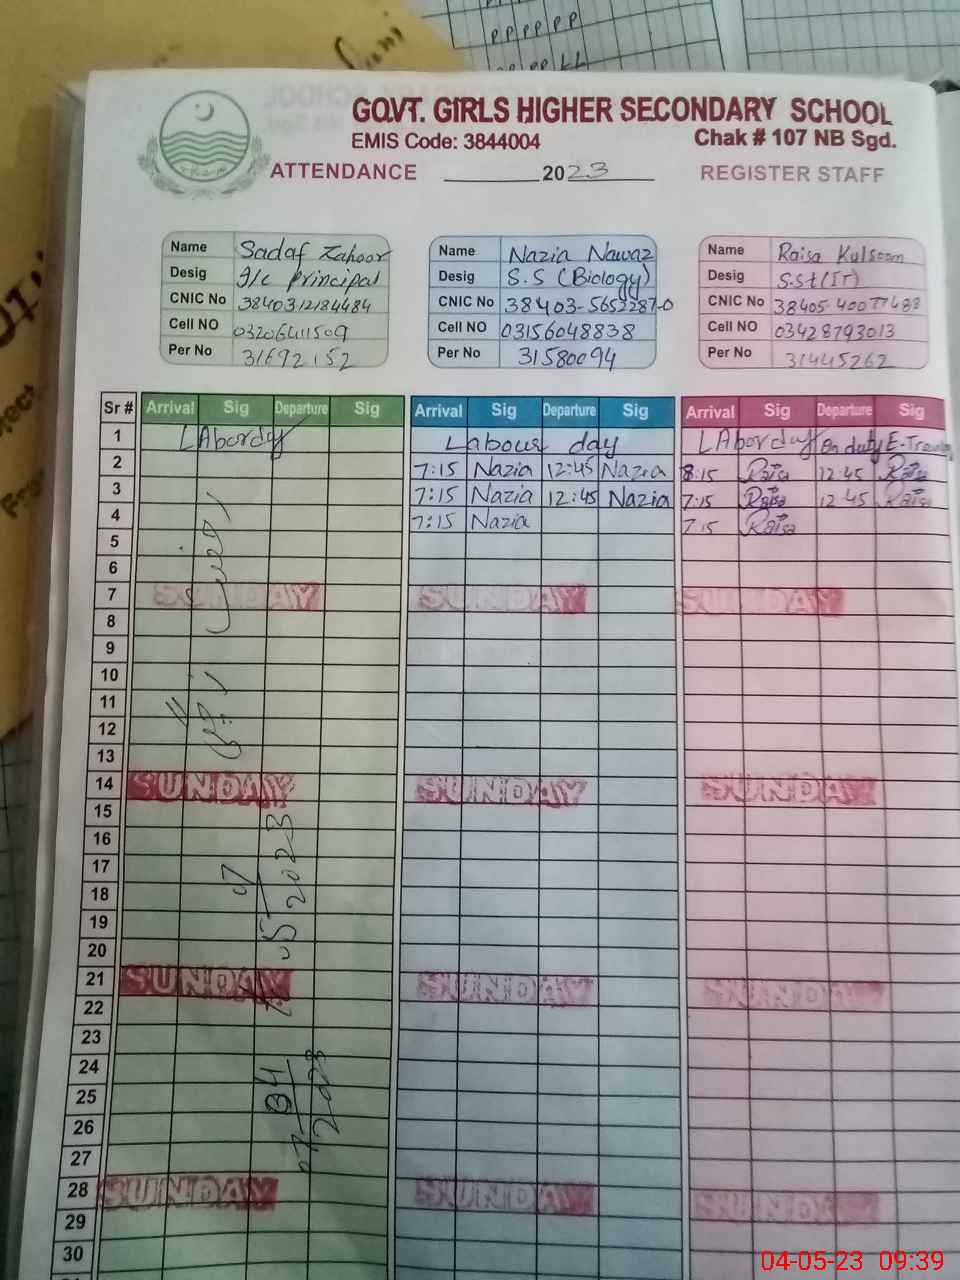 GOVT. GIRLS HIGHER SECONDARY SCHOOL
EMIS Code: 3844004 Chak # 107 NB Sgd.
ATTENDANCE 2023 REGISTER STAFF
Name Sadaf Zahoor
Desig I/c Principal
CNIC No 3840312184484
Cell NO 03206411509
Per No 31692152
Name Nazia Nawaz
Desig S.S (Biology)
CNIC No 38403-5652287-0
Cell NO 03156048838
Per No 31580094
Name Raisa Kulsoom
Desig S.St (IT)
CNIC No 38405-40077488
Cell NO 03428793013
Per No 31445262
Sr # Arrival Sig Departure Sig Arrival Sig Departure Sig Arrival Sig Departure Sig
1 LAborday Labour day LAborday On duty E-Training
2 7:15 Nazia 12:45 Nazia 8:15 Raisa 12:45 Raisa
3 7:15 Nazia 12:45 Nazia 7:15 Raisa 12:45 Raisa
4 7:15 Nazia 7:15 Raisa
5
6
7 SUNDAY SUNDAY SUNDAY
8
9
10
11
12
13
14 SUNDAY SUNDAY SUNDAY
15
16
17
18
19
20
21 SUNDAY SUNDAY SUNDAY
22
23
24
25
26
27
28 SUNDAY SUNDAY SUNDAY
29
30
04-05-23 09:39